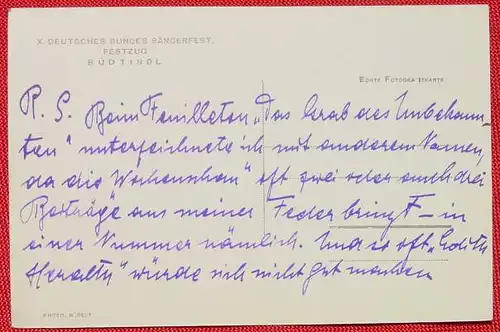 X. DEUTSCHES BUNDES SÄNGERFEST,
FESTZUG
SÜDTIROL
ECHTE FOTOGRAFIEKARTE
P. S. Beim Feuilleton „Das Grab des Unbekann-
ten" unterzeichnete ich mit anderem Namen,
da die „Wochenschau" oft zwei oder auch drei
Beiträge aus meiner Feder bringt – in
einer Nummer nämlich. Und so oft „Edith
" würde sich nicht gut machen